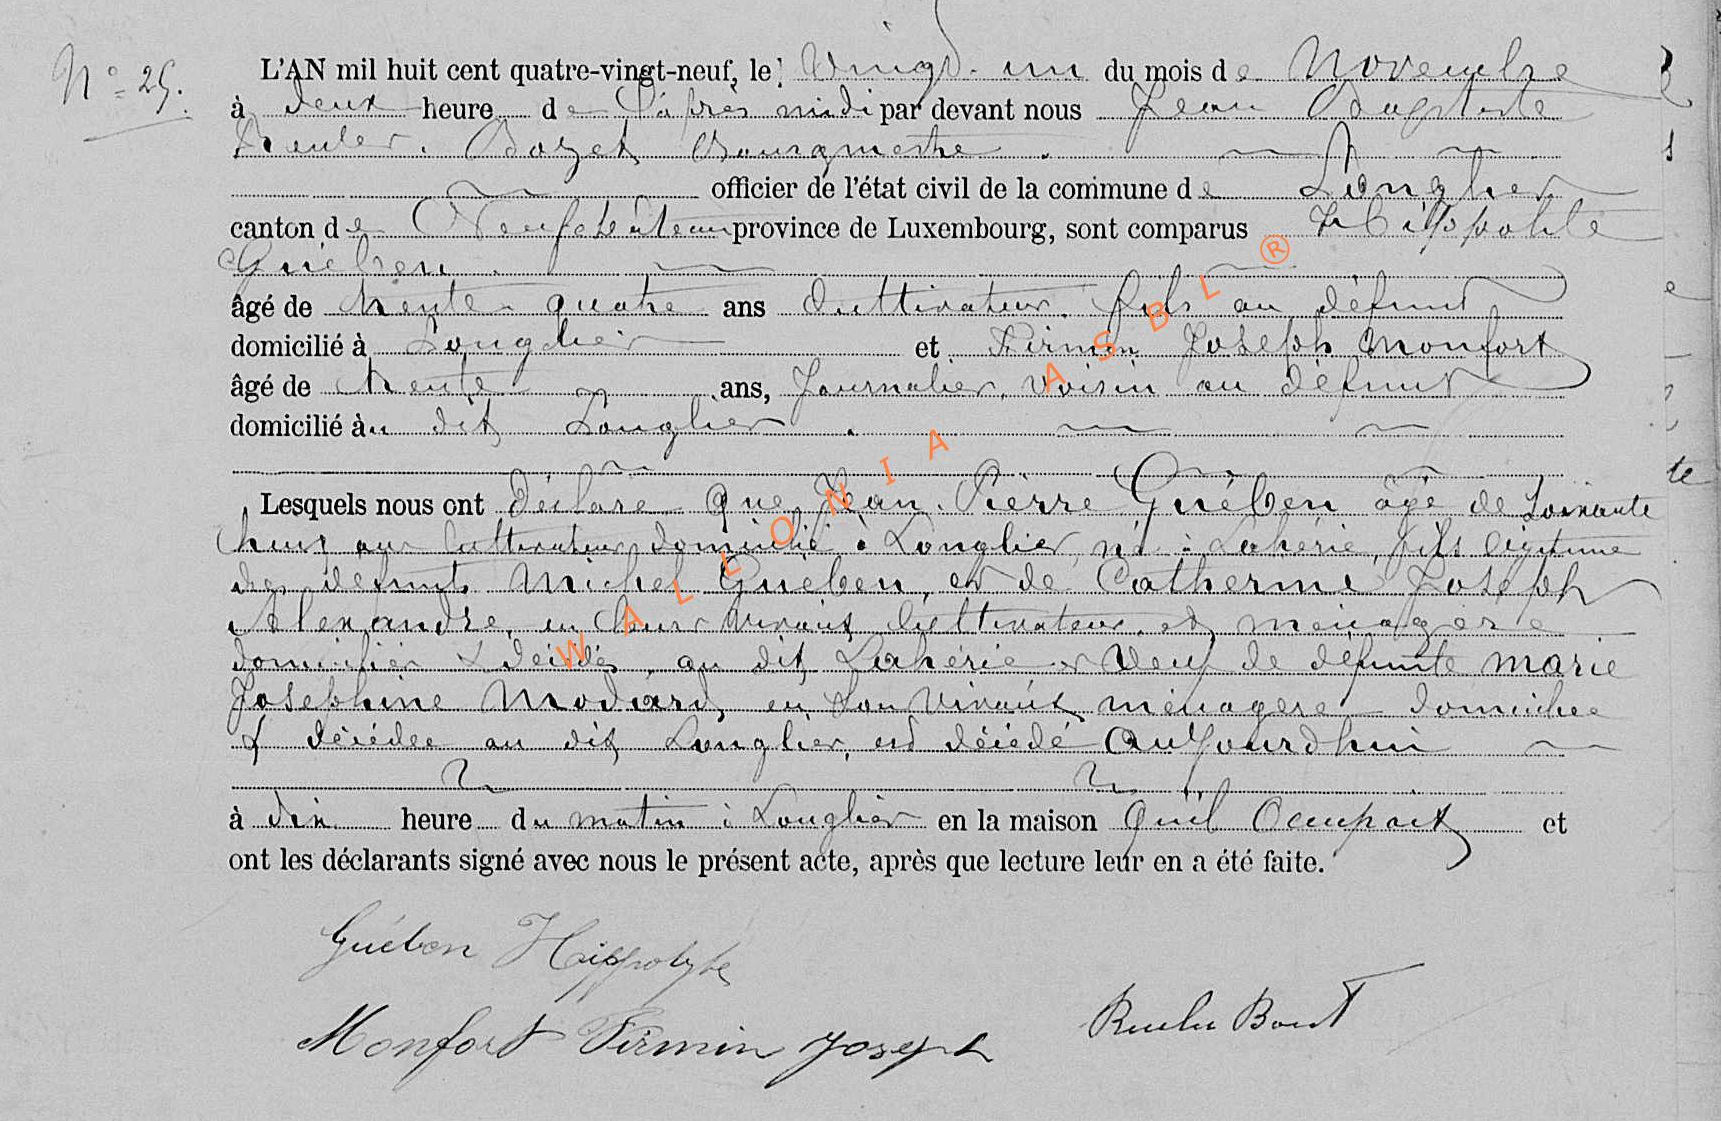 N° 25.
L'AN mil huit cent quatre-vingt-neuf, le vingt-un du mois de Novembre
à deux heure de l'après midi par devant nous Jean Baptiste
Reuler. Bozet Bourgmestre.
officier de l'état civil de la commune de Longlier
canton de Neufchâteau province de Luxembourg, sont comparus Hippolite
Guében.
âgé de trente-quatre ans Cultivateur. fils au défunt
domicilié à Longlier et Firmin Joseph Monfort
âgé de trente ans, Journalier, voisin au défunt
domicilié àu dit Longlier.
Lesquels nous ont déclaré que Jean-Pierre Guében âgé de Soixante
huit ans Cultivateur domicilié à Longlier, né à Lahérie, fils légitime
des défunts Michel Guében, et de Catherine Joseph
Alexandre, en leurs vivants Cultivateur et ménagère
domiciliés & décédés au dit Lahérie et Veuf de défunte Marie
Joséphine Modard, en son vivant ménagère domiciliée
& décédée au dit Longlier, est décédé aujourd'hui
à dix heure du matin à Longlier en la maison quil Occupait et
ont les déclarants signé avec nous le présent acte, après que lecture leur en a été faite.
Guében Hippolyte
Monfort Firmin Joseph
WALLONIA ASBL ®